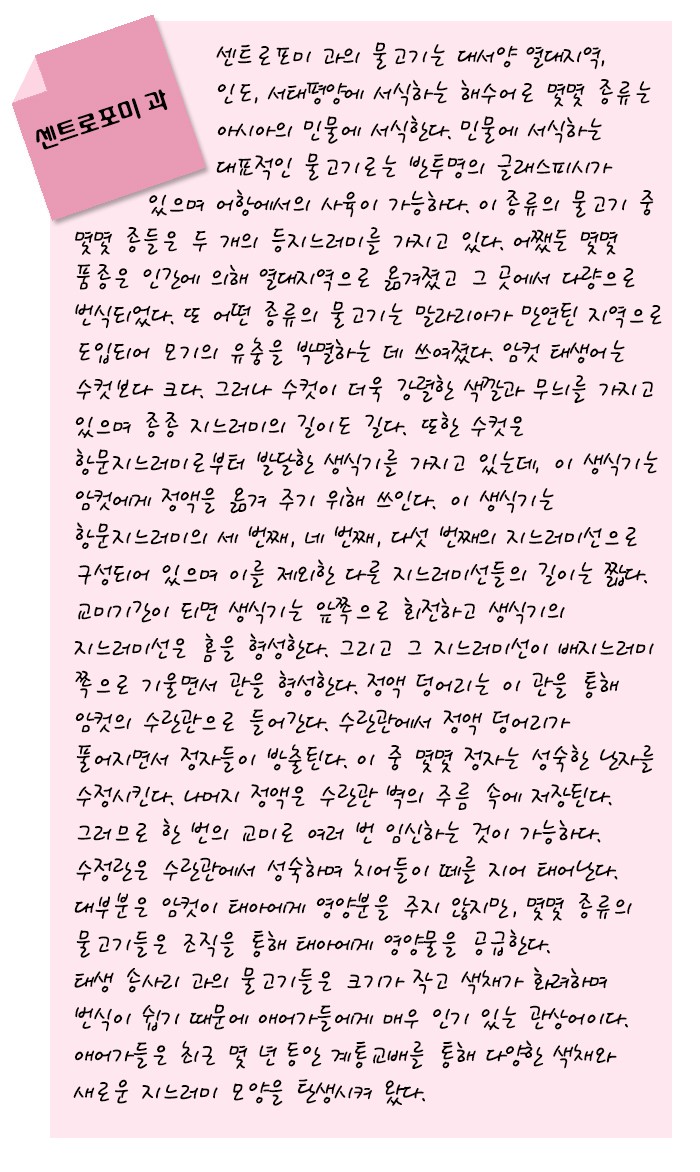 센트로포미 과
센트로포미 과의 물고기는 대서양 열대지역,
인도, 서태평양에 서식하는 해수어로 몇몇 종류는
아시아의 민물에 서식한다. 민물에 서식하는
대표적인 물고기로는 반투명의 글래스피시가
있으며 어항에서의 사육이 가능하다. 이 종류의 물고기 중
몇몇 종들은 두 개의 등지느러미를 가지고 있다. 어쨌든 몇몇
품종은 인간에 의해 열대지역으로 옮겨졌고 그 곳에서 다량으로
번식되었다. 또 어떤 종류의 물고기는 말라리아가 만연된 지역으로
도입되어 모기의 유충을 박멸하는 데 쓰여졌다. 암컷 태생어는
수컷보다 크다. 그러나 수컷이 더욱 강렬한 색깔과 무늬를 가지고
있으며 종종 지느러미의 길이도 길다. 또한 수컷은
항문지느러미로부터 발달한 생식기를 가지고 있는데, 이 생식기는
암컷에게 정액을 옮겨 주기 위해 쓰인다. 이 생식기는
항문지느러미의 세 번째, 네 번째, 다섯 번째의 지느러미선으로
구성되어 있으며 이를 제외한 다른 지느러미선들의 길이는 짧다.
교미기간이 되면 생식기는 앞쪽으로 회전하고 생식기의
지느러미선은 홈을 형성한다. 그리고 그 지느러미선이 배지느러미
쪽으로 기울면서 관을 형성한다. 정액 덩어리는 이 관을 통해
암컷의 수란관으로 들어간다. 수란관에서 정액 덩어리가
풀어지면서 정자들이 방출된다. 이 중 몇몇 정자는 성숙한 난자를
수정시킨다. 나머지 정액은 수란관 벽의 주름 속에 저장된다.
그러므로 한 번의 교미로 여러 번 임신하는 것이 가능하다.
수정란은 수란관에서 성숙하며 치어들이 떼를 지어 태어난다.
대부분은 암컷이 태아에게 영양분을 주지 않지만, 몇몇 종류의
물고기들은 조직을 통해 태아에게 영양물을 공급한다.
태생 송사리 과의 물고기들은 크기가 작고 색채가 화려하며
번식이 쉽기 때문에 애어가들에게 매우 인기 있는 관상어이다.
애어가들은 최근 몇 년 동안 계통교배를 통해 다양한 색채와
새로운 지느러미 모양을 탄생시켜 왔다.